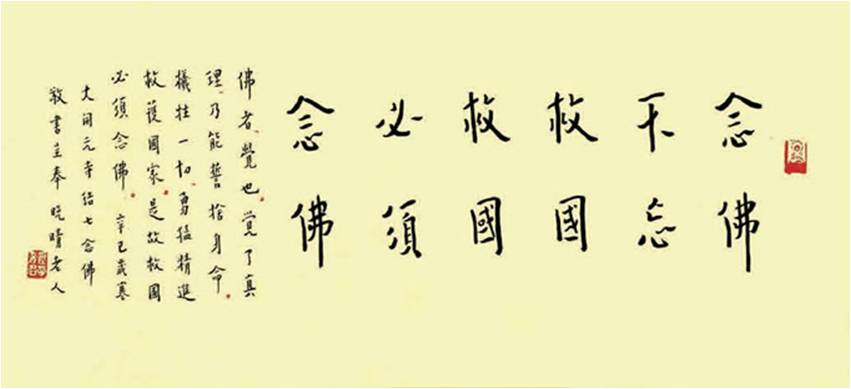 念佛
不忘
救國
救國
必須
念佛
佛者、覺也、覺了真
理、乃能誓捨身命。
犧牲一切、勇猛精進
救護國家。是故救國
必須念佛。辛巳歲寒
大開元寺結七念佛
敬書呈奉 晚晴老人